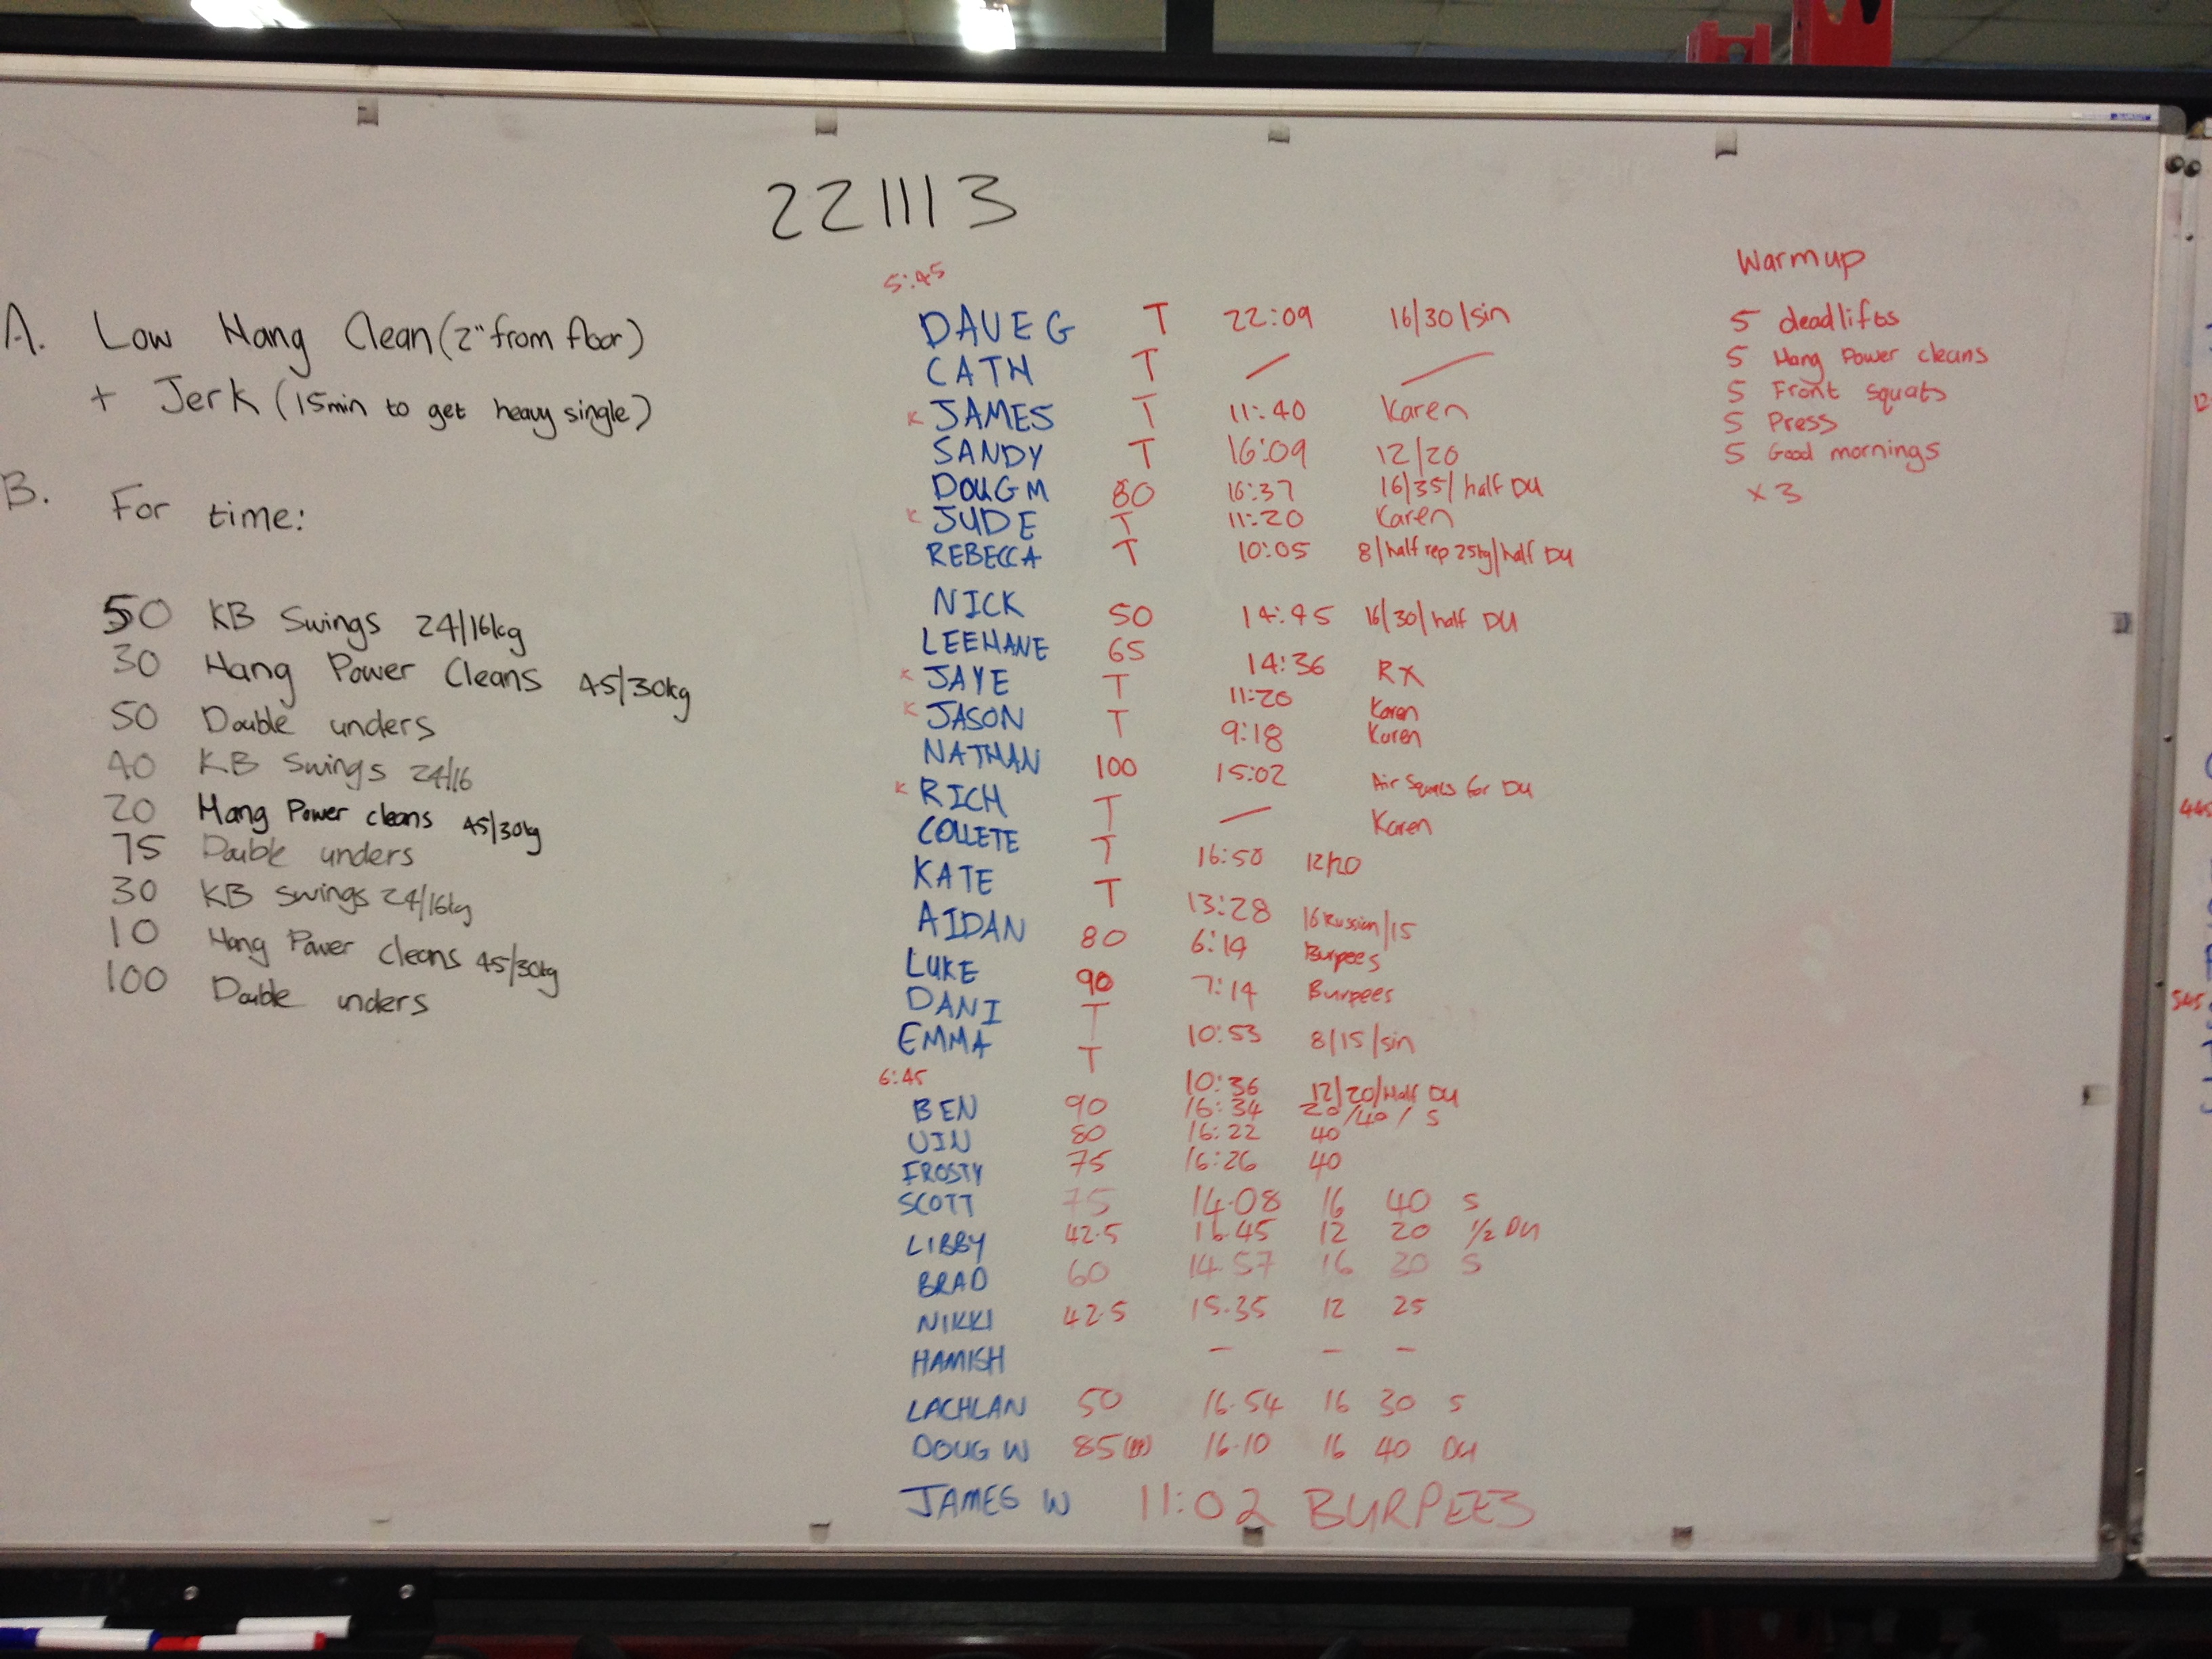 221113
A. Low Hang Clean (2" from floor)
+ Jerk (15min to get heavy single)
B. For time:
50 KB Swings 24/16kg
30 Hang Power Cleans 45/30kg
50 Double unders
40 KB Swings 24/16
20 Hang Power cleans 45/30kg
75 Double unders
30 KB Swings 24/16kg
10 Hang Power cleans 45/30kg
100 Double unders
5:45
DAVE G T 22:09 16/30/sin
CATH T / /
K JAMES T 11:40 Karen
SANDY T 16:09 12/20
DOUG M 80 16:37 16/35/half DU
K JUDE T 11:20 Karen
REBECCA T 10:05 8/half rep 25kg/half DU
NICK 50 14:45 16/30/half DU
LEEHANE 65 14:36 RX
K JAYE T 11:20 Karen
K JASON T 9:18 Karen
NATHAN 100 15:02 Air Squats for DU
K RICH T — Karen
COLLETE T 16:50 12/20
KATE T 13:28 16 Russian/15
AIDAN 80 6:14 Burpees
LUKE 90 7:14 Burpees
DANI T 10:53 8/15/sin
EMMA T 10:36 12/20/Half DU
6:45
BEN 90 16:34 20/40/S
VIN 80 16:22 40
FROSTY 75 16:26 40
SCOTT 75 14.08 16 40 S
LIBBY 42.5 16.45 12 20 1/2 DU
BRAD 60 14.57 16 30 S
NIKKI 42.5 15.35 12 25
HAMISH – – –
LACHLAN 50 16.54 16 30 S
DOUG W 85 16.10 16 40 DU
JAMES W 11:02 BURPEES
Warmup
5 deadlifts
5 Hang Power cleans
5 Front squats
5 Press
5 Good mornings
x 3